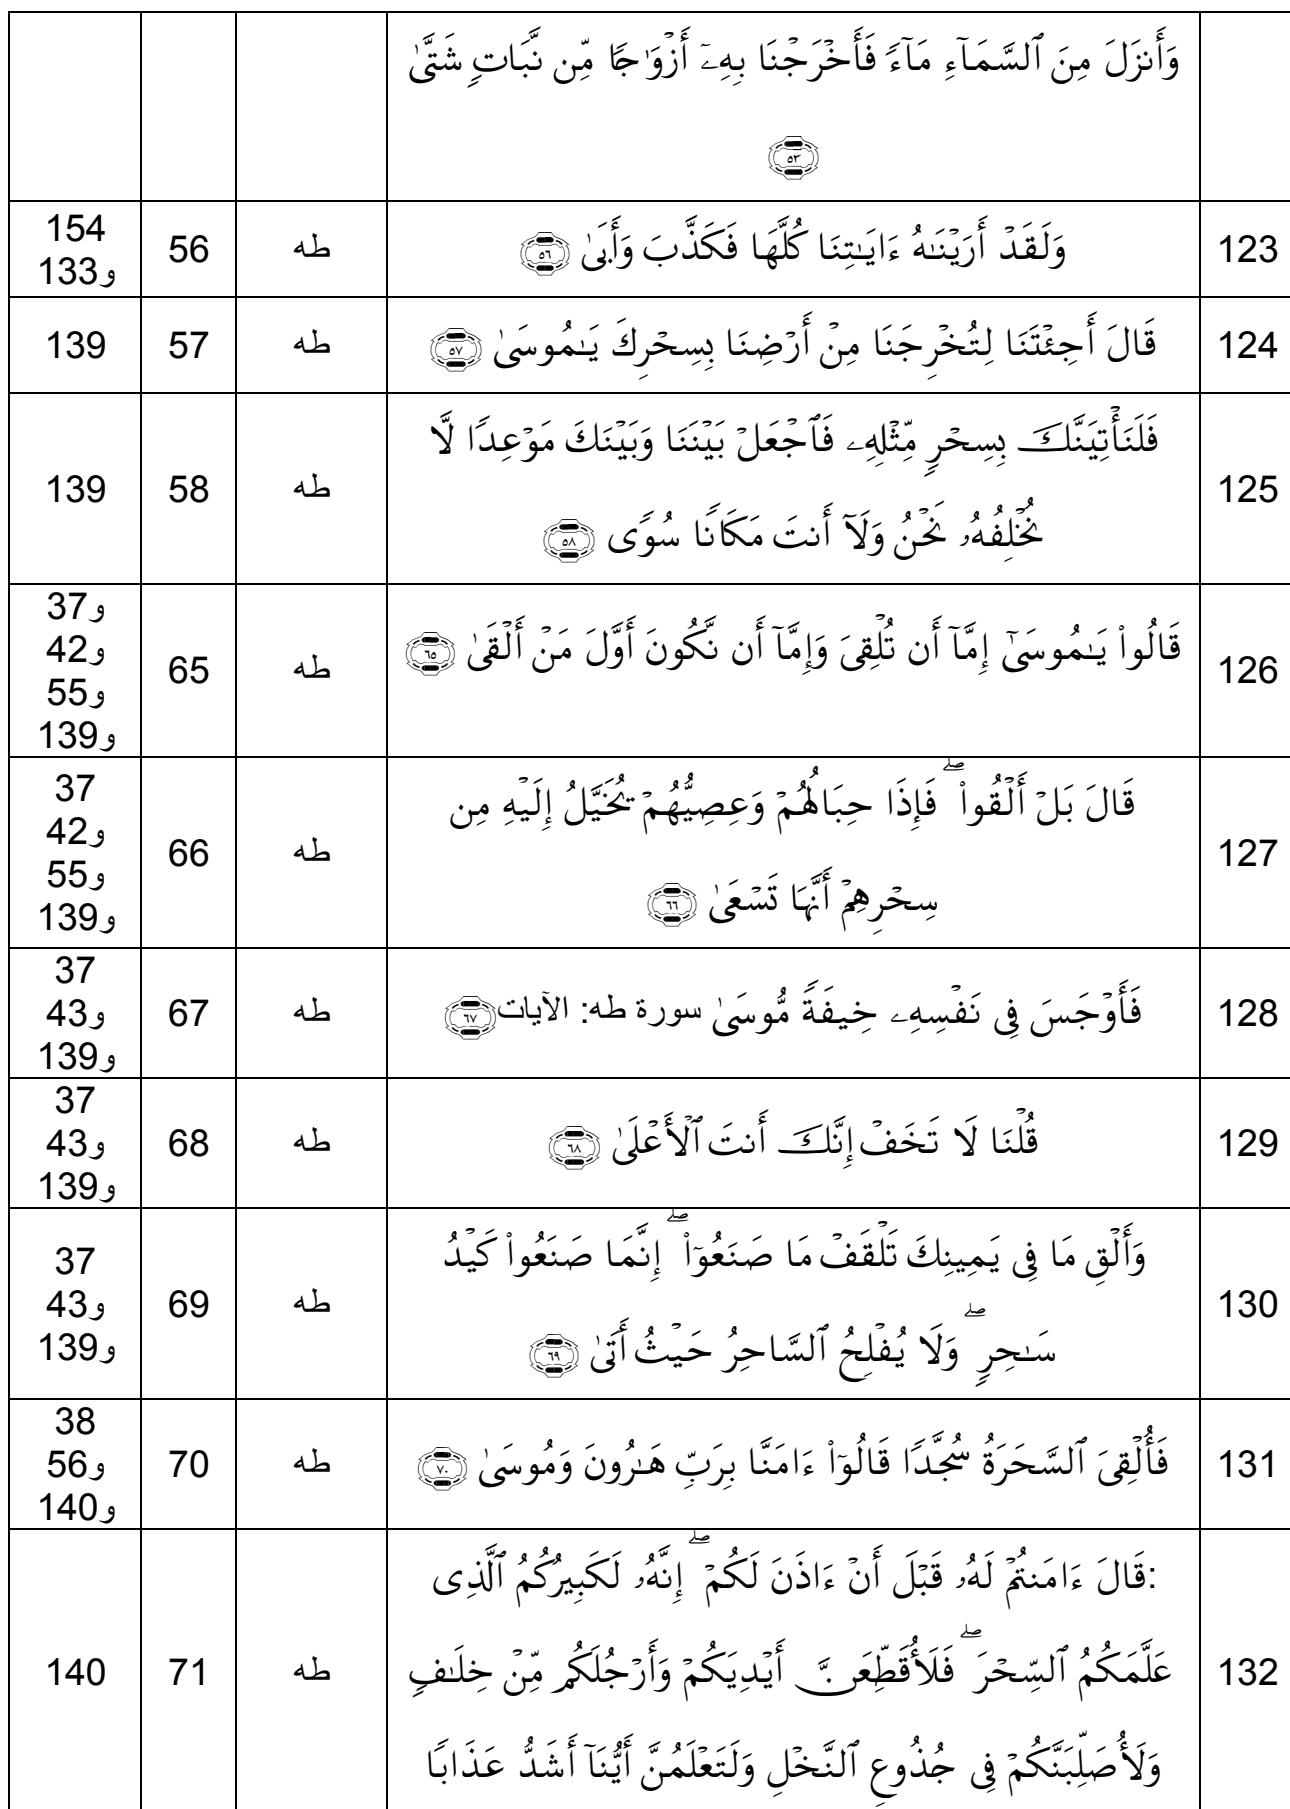 وَأَنزَلَ مِنَ ٱلسَّمَآءِ مَآءً فَأَخۡرَجۡنَا بِهِۦٓ أَزۡوَٰجًا مِّن نَّبَاتٍ شَتَّىٰ
٥٣
123 وَلَقَدۡ أَرَيۡنَٰهُ ءَايَٰتِنَا كُلَّهَا فَكَذَّبَ وَأَبَىٰ ٥٦ طه 56 154
و133
124 قَالَ أَجِئۡتَنَا لِتُخۡرِجَنَا مِنۡ أَرۡضِنَا بِسِحۡرِكَ يَٰمُوسَىٰ ٥٧ طه 57 139
125 فَلَنَأۡتِيَنَّكَ بِسِحۡرٍ مِّثۡلِهِۦ فَٱجۡعَلۡ بَيۡنَنَا وَبَيۡنَكَ مَوۡعِدًا لَّا
نُخۡلِفُهُۥ نَحۡنُ وَلَآ أَنتَ مَكَانًا سُوًى ٥٨ طه 58 139
126 قَالُواْ يَٰمُوسَىٰٓ إِمَّآ أَن تُلۡقِىَ وَإِمَّآ أَن نَّكُونَ أَوَّلَ مَنۡ أَلۡقَىٰ ٦٥ طه 65 و37
و42
و55
و139
127 قَالَ بَلۡ أَلۡقُواْۖ فَإِذَا حِبَالُهُمۡ وَعِصِيُّهُمۡ يُخَيَّلُ إِلَيۡهِ مِن
سِحۡرِهِمۡ أَنَّهَا تَسۡعَىٰ ٦٦ طه 66 37
و42
و55
و139
128 فَأَوۡجَسَ فِى نَفۡسِهِۦ خِيفَةً مُّوسَىٰ سورة طه: الآيات ٦٧ طه 67 37
و43
و139
129 قُلۡنَا لَا تَخَفۡ إِنَّكَ أَنتَ ٱلۡأَعۡلَىٰ ٦٨ طه 68 37
و43
و139
130 وَأَلۡقِ مَا فِى يَمِينِكَ تَلۡقَفۡ مَا صَنَعُوٓاْۖ إِنَّمَا صَنَعُواْ كَيۡدُ
سَٰحِرٍۖ وَلَا يُفۡلِحُ ٱلسَّاحِرُ حَيۡثُ أَتَىٰ ٦٩ طه 69 37
و43
و139
131 فَأُلۡقِىَ ٱلسَّحَرَةُ سُجَّدًا قَالُوٓاْ ءَامَنَّا بِرَبِّ هَٰرُونَ وَمُوسَىٰ ٧٠ طه 70 38
و56
و140
132 :قَالَ ءَامَنتُمۡ لَهُۥ قَبۡلَ أَنۡ ءَاذَنَ لَكُمۡۖ إِنَّهُۥ لَكَبِيرُكُمُ ٱلَّذِى
عَلَّمَكُمُ ٱلسِّحۡرَۖ فَلَأُقَطِّعَنَّ أَيۡدِيَكُمۡ وَأَرۡجُلَكُم مِّنۡ خِلَٰفٍ
وَلَأُصَلِّبَنَّكُمۡ فِى جُذُوعِ ٱلنَّخۡلِ وَلَتَعۡلَمُنَّ أَيُّنَآ أَشَدُّ عَذَابًا طه 71 140